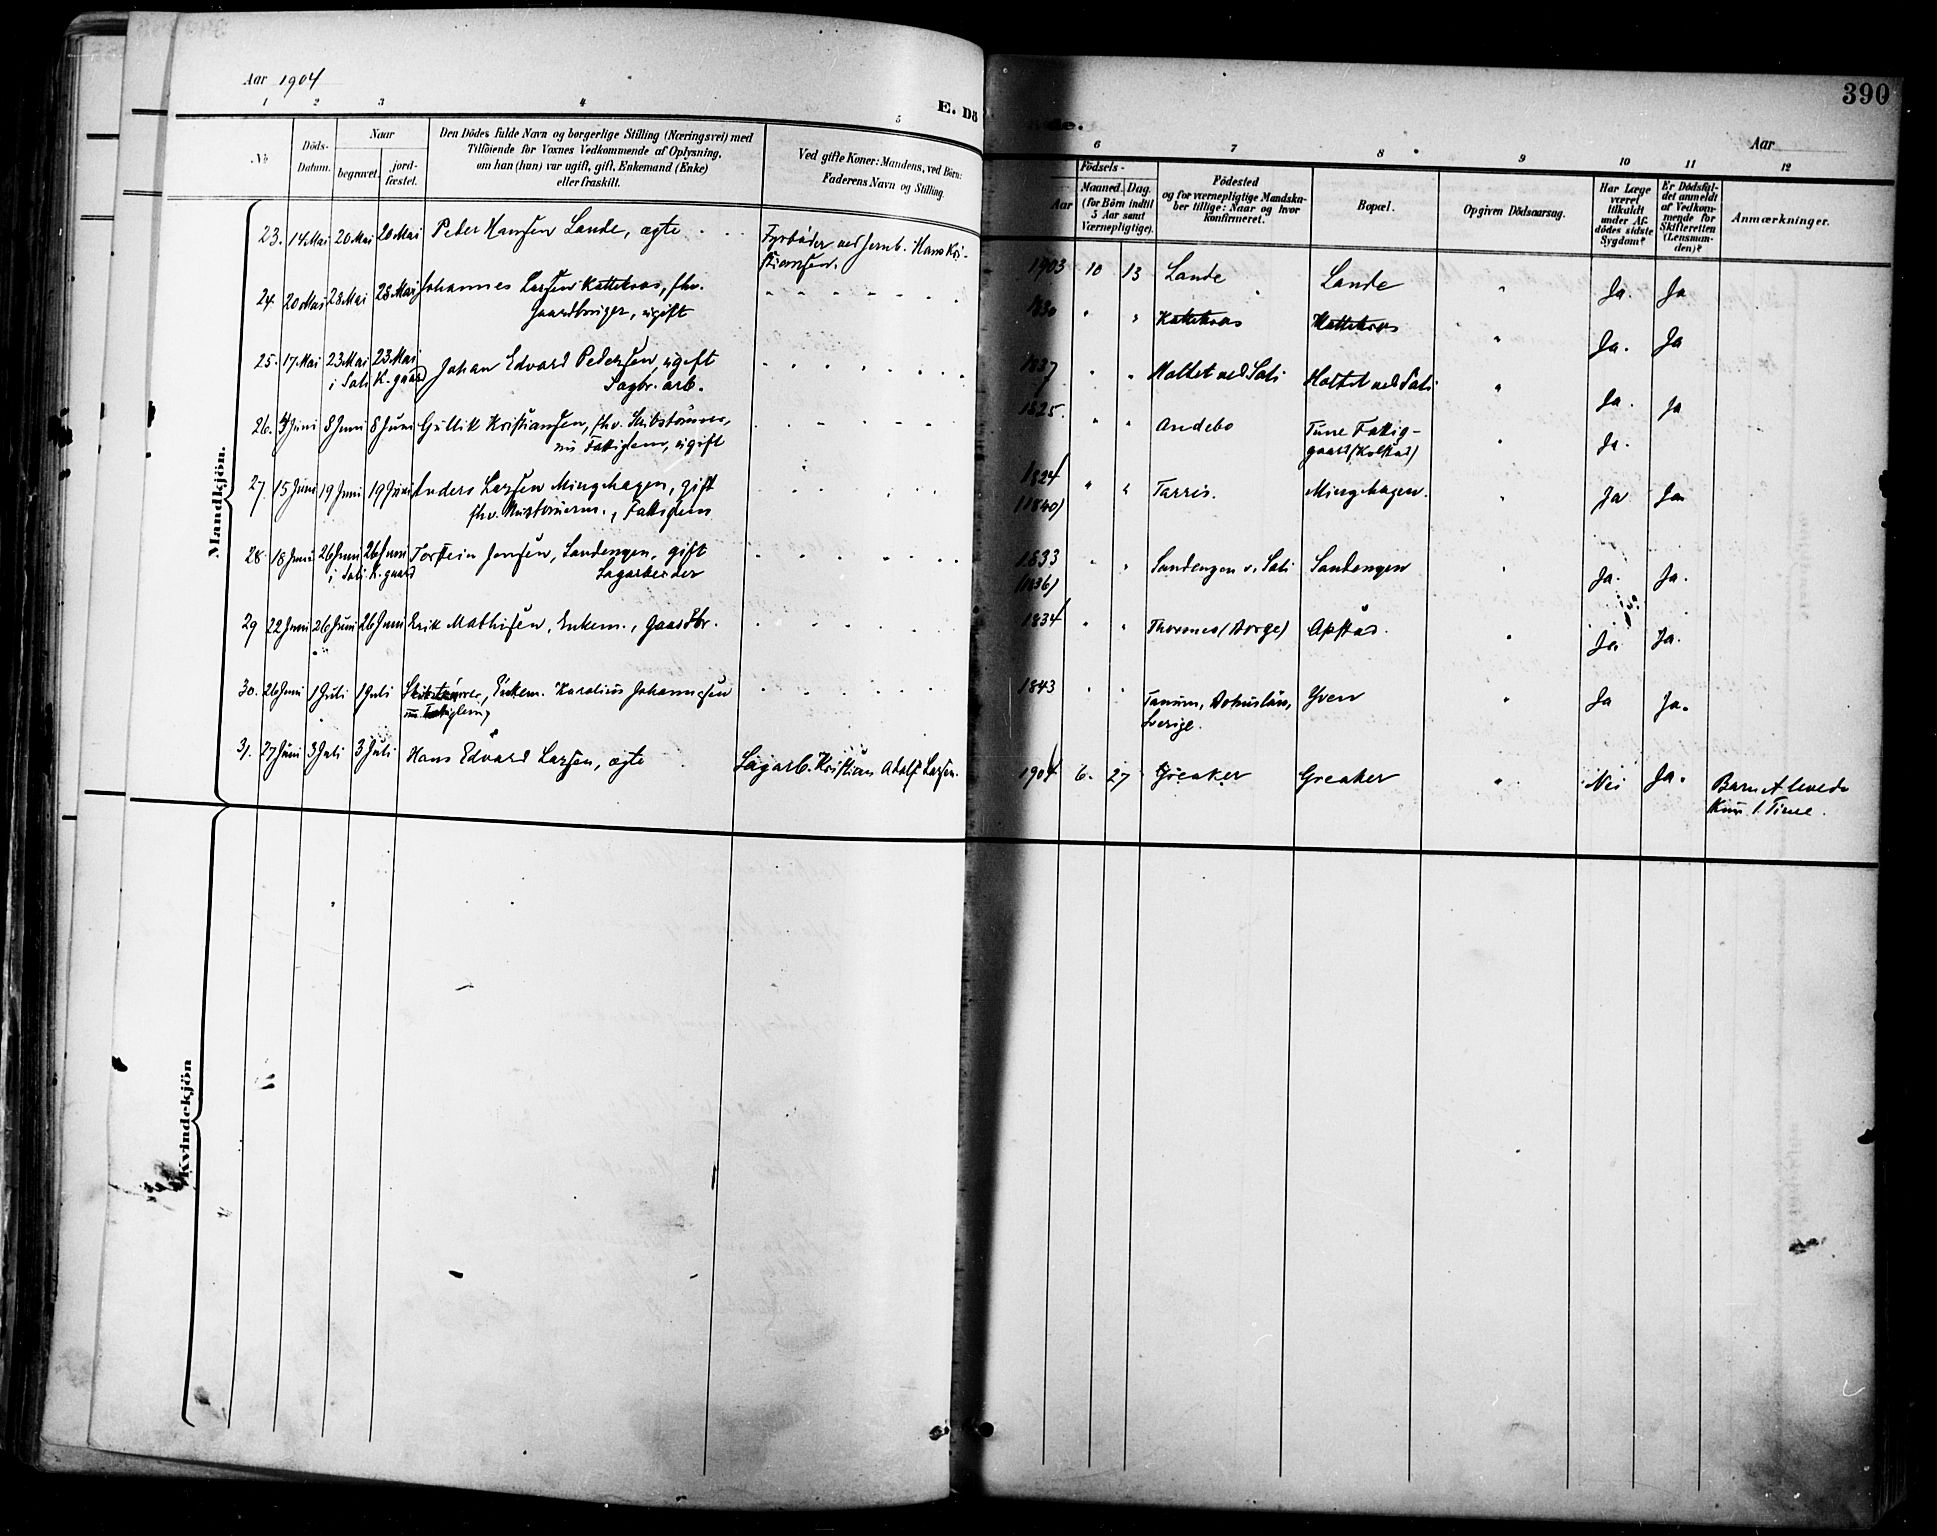 Aar 1904
E. Dö
de.
Aar
390
1 2 3 4 5 6 7 8 9 10 11 12
No
Döds-
Datum.
Naar
begravet.
jord-
fæstet.
Den Dödes fulde Navn og borgerlige Stilling (Næringsvei) med
Tilföiende for Voxnes Vedkommende af Oplysning,
om han (hun) var ugift, gift, Enkemand (Enke)
eller fraskilt.
Ved gifte Koner: Mandens, ved Börn:
Faderens Navn og Stilling.
Födsels-
Aar
Maaned. Dag.
(for Börn indtil
5 Aar samt
Værnepligtige).
Födested
og for værnepligtige Mandska-
ber tillige: Naar og hvor
konfirmeret.
Bopæl.
Opgiven Dödsaarsag.
Har Læge
været
tilkaldt
under Af-
dödes sidste
Sygdom?
Er Dödsfal-
det anmeldt
af Vedkom-
mende for
Skifteretten
(Lensman-
den)?
Anmærkninger.
Mandkjön.
23. 14 Mai 20 Mai 20 Mai Peder Hansen Lande, ægte Fyrböder ved Jernb. Hans Kri-
stiansen. 1903 10 13 Lande Lande " Ja. Ja
24. 20 Mai 28 Mai 28 Mai Johannes Larsen Kattekras, fhv.
Gaardbruger, ugift 1830 " " Kattekras Kattekras " Ja. Ja
25. 17 Mai 23 Mai 23 Mai Johan Edvard Pedersen, ugift
i Soli K.gaard Sagbr. arb. 1837 " " Holtet ved Soli Holtet ved Soli " Ja. Ja
26. 4 Juni 8 Juni 8 Juni Gullik Kristiansen, fhv. Skibstömrer,
nu Fattiglem, ugift 1825. " " Andebo Tune Fattig-
gaard (Kolstad) " Ja.
27. 15 Juni 19 Juni 19 Juni Anders Larsen Mingehagen, gift
fhv. , Fattiglem 1824
(1840) " " Tarris. Mingehagen. " Ja Ja
28. 18 Juni 26 Juni 26 Juni Torstein Jensen, Sandengen, gift
i Soli K.gaard Sagarbeider 1833
(1836) " " Sandengen v. Soli Sandengen " Ja. Ja.
29 22 Juni 26 Juni 26 Juni Erik Mathisen, Enkem., Gaardbr. 1834 " " Thorsnes (Borge) Opstad. " Ja. Ja.
30. 26 Juni 1 Juli 1 Juli Skibstömrer, Enkem. Karolius Johannesen
nu Fattiglem 1843 " " Tanum, Bohuslän,
Sverige. Yven " Ja Ja.
31. 27 Juni 3 Juli 3 Juli Hans Edvard Larsen, ægte Sagarb. Kristian Adolf Larsen. 1904 6. 27 Greaker Greaker " Nei Ja. Barnet levede
kun 1 Time.
Kvindekjön